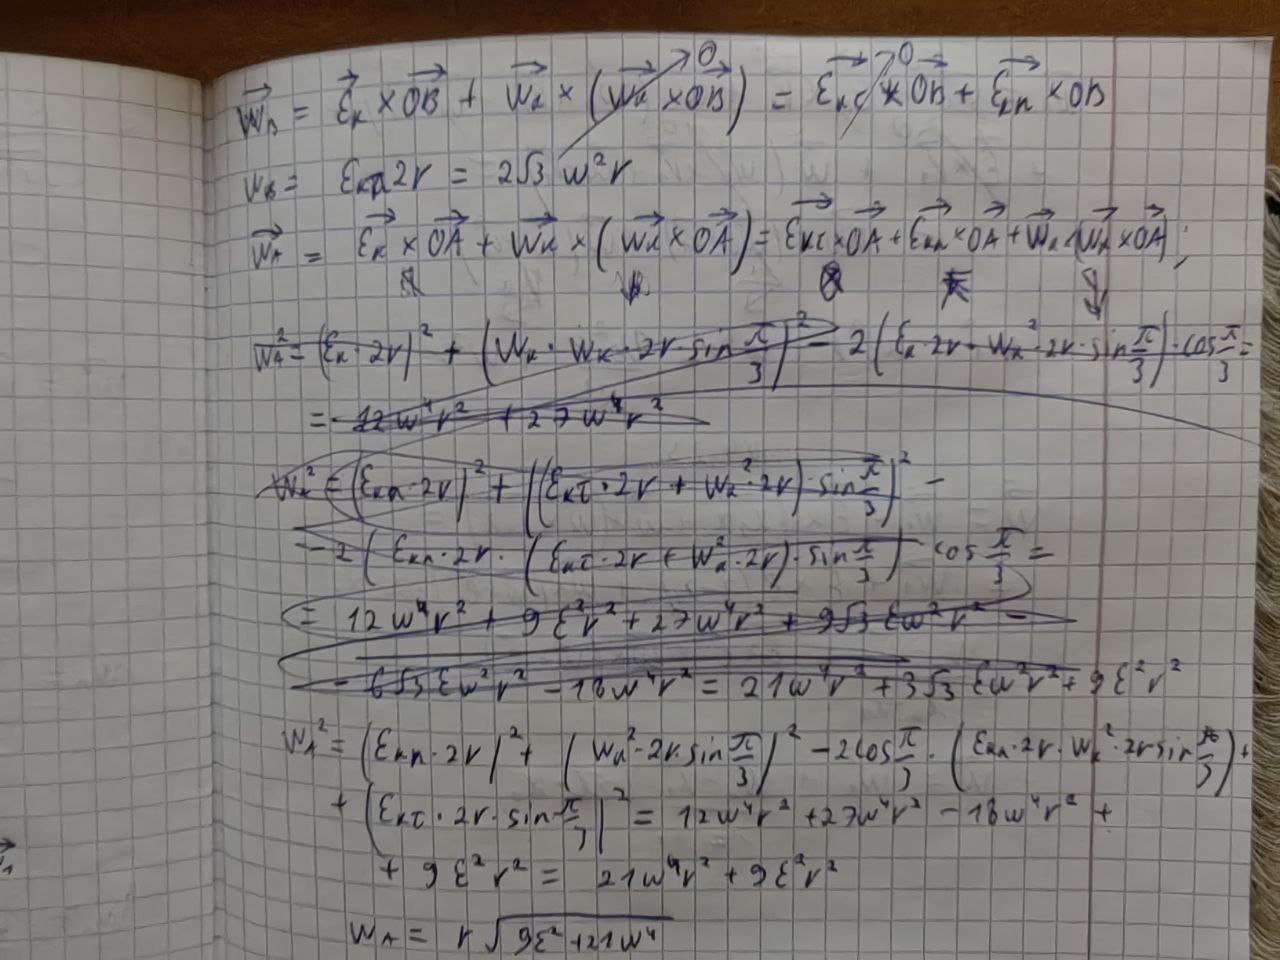 w⃗_B = ε⃗_к × OB⃗ + w⃗_к × (w⃗_к × OB⃗) →0 = ε⃗_кτ × OB⃗ →0 + ε⃗_кn × OB
w_B = ε_кn 2r = 2√3 w²r
w⃗_A = ε⃗_к × OA⃗ + w⃗_к × (w⃗_к × OA⃗) = ε⃗_кτ × OA⃗ + ε⃗_кn × OA⃗ + w⃗_к × (w⃗_к × OA⃗);
w_A² = (ε_к · 2r)² + (w_к · w_к · 2r · sin π/3)² − 2(ε_к · 2r · w_к² · 2r · sin π/3) · cos π/3 =
= 12w⁴r² + 27w⁴r²
w_A² = (ε_кn · 2r)² + ((ε_кτ · 2r + w_к² · 2r) · sin π/3)² −
− 2(ε_кn · 2r · (ε_кτ · 2r + w_к² · 2r) · sin π/3) · cos π/3 =
= 12w⁴r² + 9ε²r² + 27w⁴r² + 9√3 εw²r² −
− 6√3 εw²r² − 18w⁴r² = 21w⁴r² + 3√3 εw²r² + 9ε²r²
w_A² = (ε_кn · 2r)² + (w_к² · 2r · sin π/3)² − 2cos π/3 · (ε_кn · 2r · w_к² · 2r sin π/3) +
+ (ε_кτ · 2r · sin π/3)² = 12w⁴r² + 27w⁴r² − 18w⁴r² +
+ 9ε²r² = 21w⁴r² + 9ε²r²
w_A = r√(9ε² + 21w⁴)